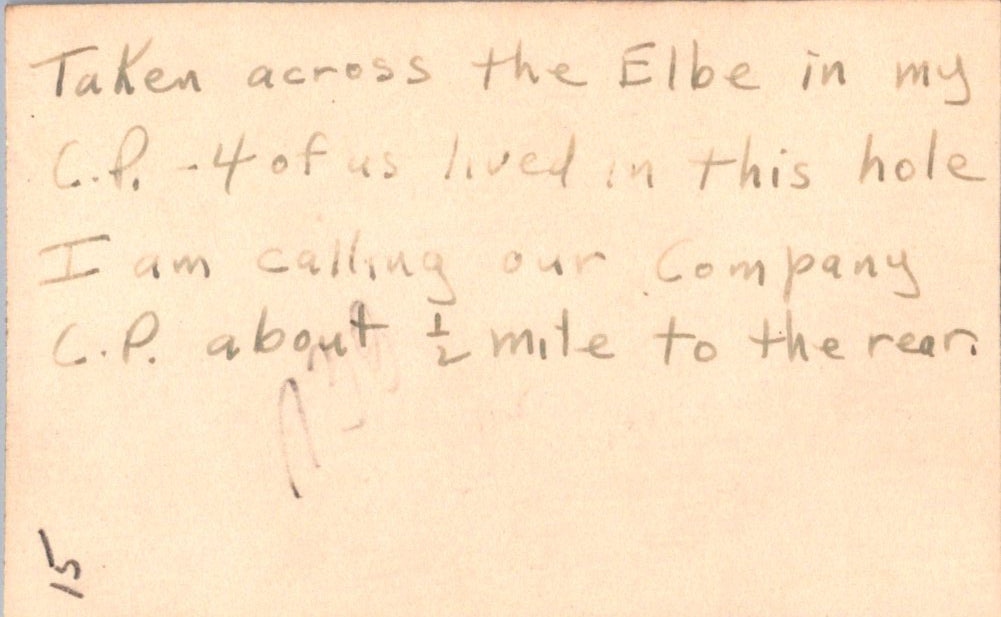 Taken across the Elbe in my
C.P. - 4 of us lived in this hole
I am calling our Company
C.P. about ½ mile to the rear.
15